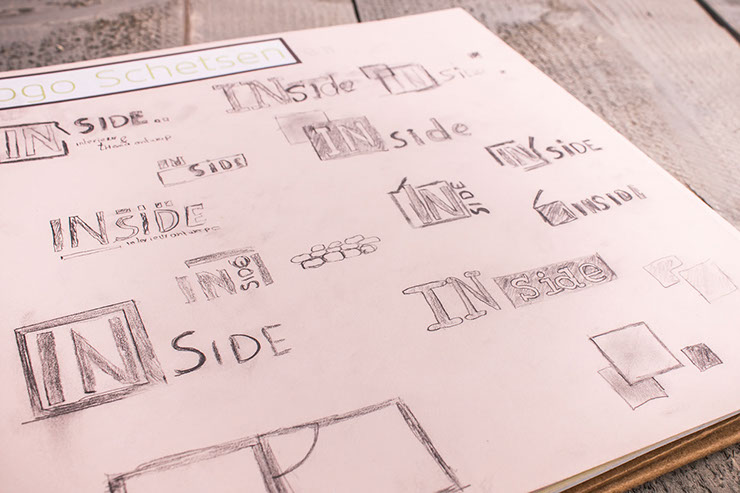 ogo Schetsen
INside
INside
IN SIDE
INside
IN SIDE
IN SIDE
INSIDE
IN SIDE
INSIDE
INSIDE
IN SIDE
IN Side
IN SIDE